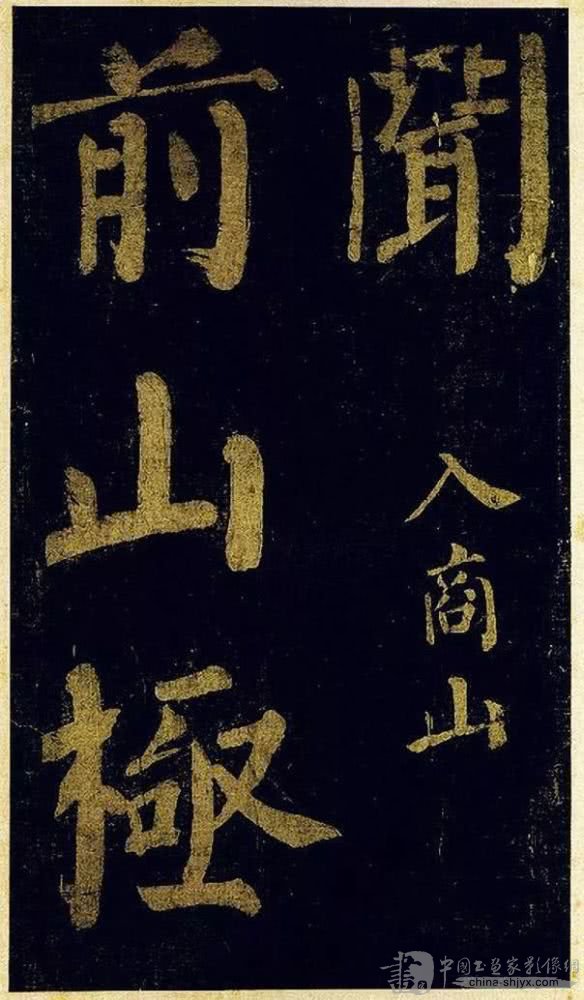 聞
入商山
前山極
中国书画家影像網
china-shjyx.com